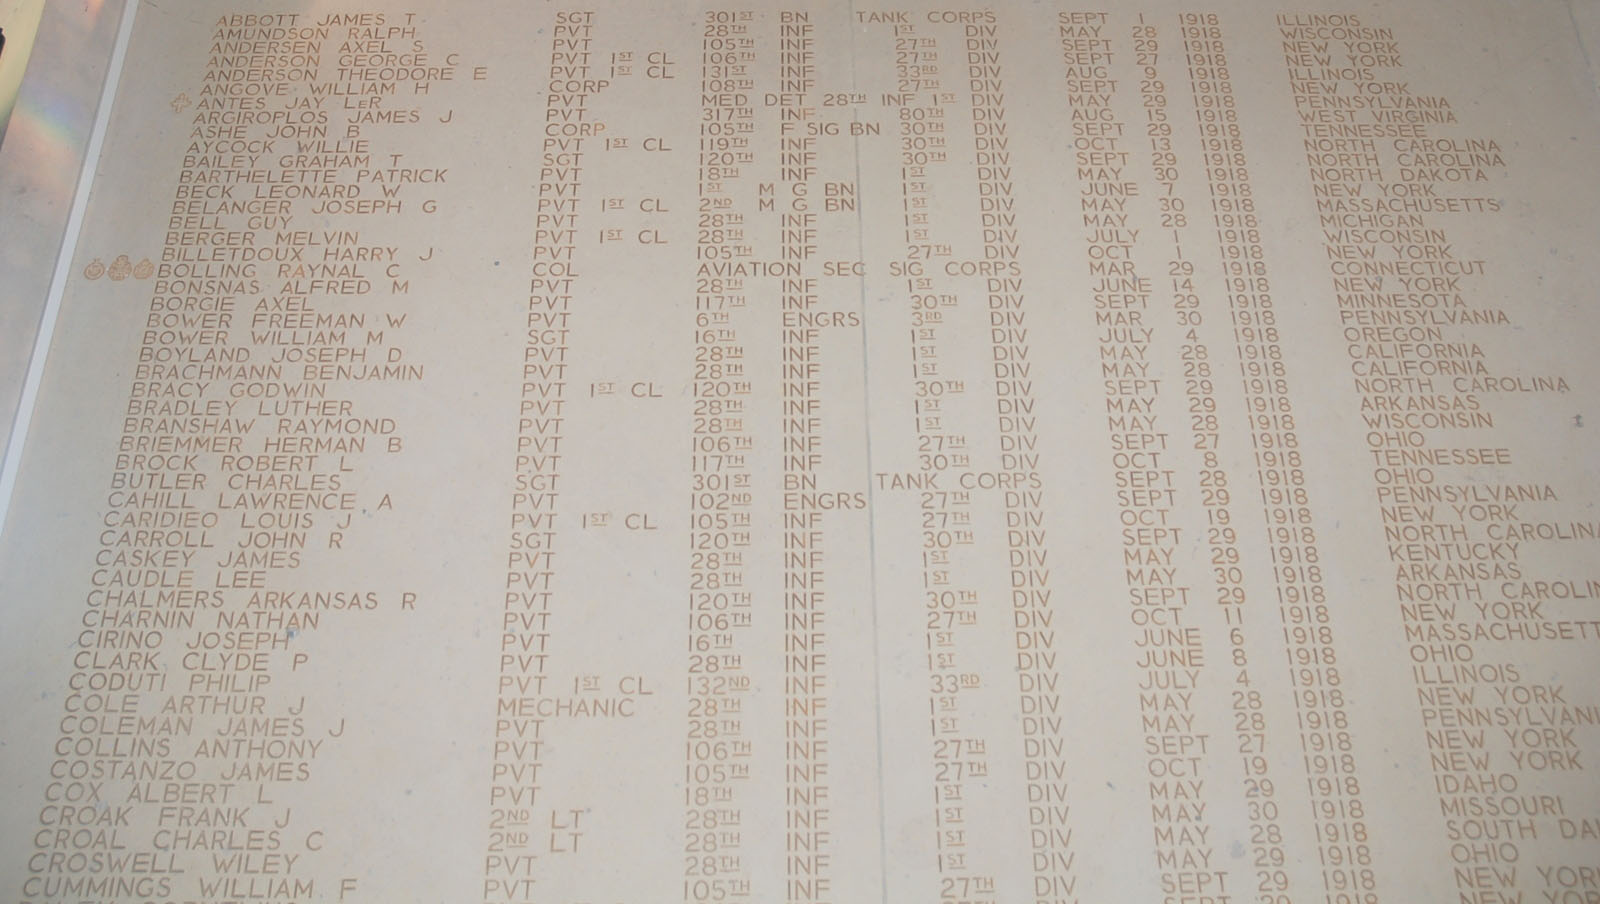 ABBOTT JAMES T SGT 301ST BN TANK CORPS SEPT 1 1918 ILLINOIS
AMUNDSON RALPH PVT 28TH INF 1ST DIV MAY 28 1918 WISCONSIN
ANDERSEN AXEL S PVT 105TH INF 27TH DIV SEPT 29 1918 NEW YORK
ANDERSON GEORGE C PVT 1ST CL 106TH INF 27TH DIV SEPT 27 1918 NEW YORK
ANDERSON THEODORE E PVT 1ST CL 131ST INF 33RD DIV AUG 9 1918 ILLINOIS
ANGOVE WILLIAM H CORP 108TH INF 27TH DIV SEPT 29 1918 NEW YORK
ANTES JAY LeR PVT MED DET 28TH INF 1ST DIV MAY 29 1918 PENNSYLVANIA
ARGIROPLOS JAMES J PVT 317TH INF 80TH DIV AUG 15 1918 WEST VIRGINIA
ASHE JOHN B CORP 105TH F SIG BN 30TH DIV SEPT 29 1918 TENNESSEE
AYCOCK WILLIE PVT 1ST CL 119TH INF 30TH DIV OCT 13 1918 NORTH CAROLINA
BAILEY GRAHAM T SGT 120TH INF 30TH DIV SEPT 29 1918 NORTH CAROLINA
BARTHELETTE PATRICK PVT 18TH INF 1ST DIV MAY 30 1918 NORTH DAKOTA
BECK LEONARD W PVT 1ST M G BN 1ST DIV JUNE 7 1918 NEW YORK
BELANGER JOSEPH G PVT 1ST CL 2ND M G BN 1ST DIV MAY 30 1918 MASSACHUSETTS
BELL GUY PVT 28TH INF 1ST DIV MAY 28 1918 MICHIGAN
BERGER MELVIN PVT 1ST CL 28TH INF 1ST DIV JULY 1 1918 WISCONSIN
BILLETDOUX HARRY J PVT 105TH INF 27TH DIV OCT 1 1918 NEW YORK
BOLLING RAYNAL C COL AVIATION SEC SIG CORPS MAR 29 1918 CONNECTICUT
BONSNAS ALFRED M PVT 28TH INF 1ST DIV JUNE 14 1918 NEW YORK
BORGIE AXEL PVT 117TH INF 30TH DIV SEPT 29 1918 MINNESOTA
BOWER FREEMAN W PVT 6TH ENGRS 3RD DIV MAR 30 1918 PENNSYLVANIA
BOWER WILLIAM M SGT 16TH INF 1ST DIV JULY 4 1918 OREGON
BOYLAND JOSEPH D PVT 28TH INF 1ST DIV MAY 28 1918 CALIFORNIA
BRACHMANN BENJAMIN PVT 28TH INF 1ST DIV MAY 28 1918 CALIFORNIA
BRACY GODWIN PVT 1ST CL 120TH INF 30TH DIV SEPT 29 1918 NORTH CAROLINA
BRADLEY LUTHER PVT 28TH INF 1ST DIV MAY 29 1918 ARKANSAS
BRANSHAW RAYMOND PVT 28TH INF 1ST DIV MAY 28 1918 WISCONSIN
BRIEMMER HERMAN B PVT 106TH INF 27TH DIV SEPT 27 1918 OHIO
BROCK ROBERT L PVT 117TH INF 30TH DIV OCT 8 1918 TENNESSEE
BUTLER CHARLES SGT 301ST BN TANK CORPS SEPT 28 1918 OHIO
CAHILL LAWRENCE A PVT 102ND ENGRS 27TH DIV SEPT 29 1918 PENNSYLVANIA
CARIDIEO LOUIS J PVT 1ST CL 105TH INF 27TH DIV OCT 19 1918 NEW YORK
CARROLL JOHN R SGT 120TH INF 30TH DIV SEPT 29 1918 NORTH CAROLINA
CASKEY JAMES PVT 28TH INF 1ST DIV MAY 29 1918 KENTUCKY
CAUDLE LEE PVT 28TH INF 1ST DIV MAY 30 1918 ARKANSAS
CHALMERS ARKANSAS R PVT 120TH INF 30TH DIV SEPT 29 1918 NORTH CAROLIN
CHARNIN NATHAN PVT 106TH INF 27TH DIV OCT 11 1918 NEW YORK
CIRINO JOSEPH PVT 16TH INF 1ST DIV JUNE 6 1918 MASSACHUSETT
CLARK CLYDE P PVT 28TH INF 1ST DIV JUNE 8 1918 OHIO
CODUTI PHILIP PVT 1ST CL 132ND INF 33RD DIV JULY 4 1918 ILLINOIS
COLE ARTHUR J MECHANIC 28TH INF 1ST DIV MAY 28 1918 NEW YORK
COLEMAN JAMES J PVT 28TH INF 1ST DIV MAY 28 1918 PENNSYLVANI
COLLINS ANTHONY PVT 106TH INF 27TH DIV SEPT 27 1918 NEW YORK
COSTANZO JAMES PVT 105TH INF 27TH DIV OCT 19 1918 NEW YORK
COX ALBERT L PVT 18TH INF 1ST DIV MAY 29 1918 IDAHO
CROAK FRANK J 2ND LT 28TH INF 1ST DIV MAY 30 1918 MISSOURI
CROAL CHARLES C 2ND LT 28TH INF 1ST DIV MAY 28 1918 SOUTH DA
CROSWELL WILEY PVT 28TH INF 1ST DIV MAY 29 1918 OHIO
CUMMINGS WILLIAM F PVT 105TH INF 27TH DIV SEPT 29 1918 NEW YOR